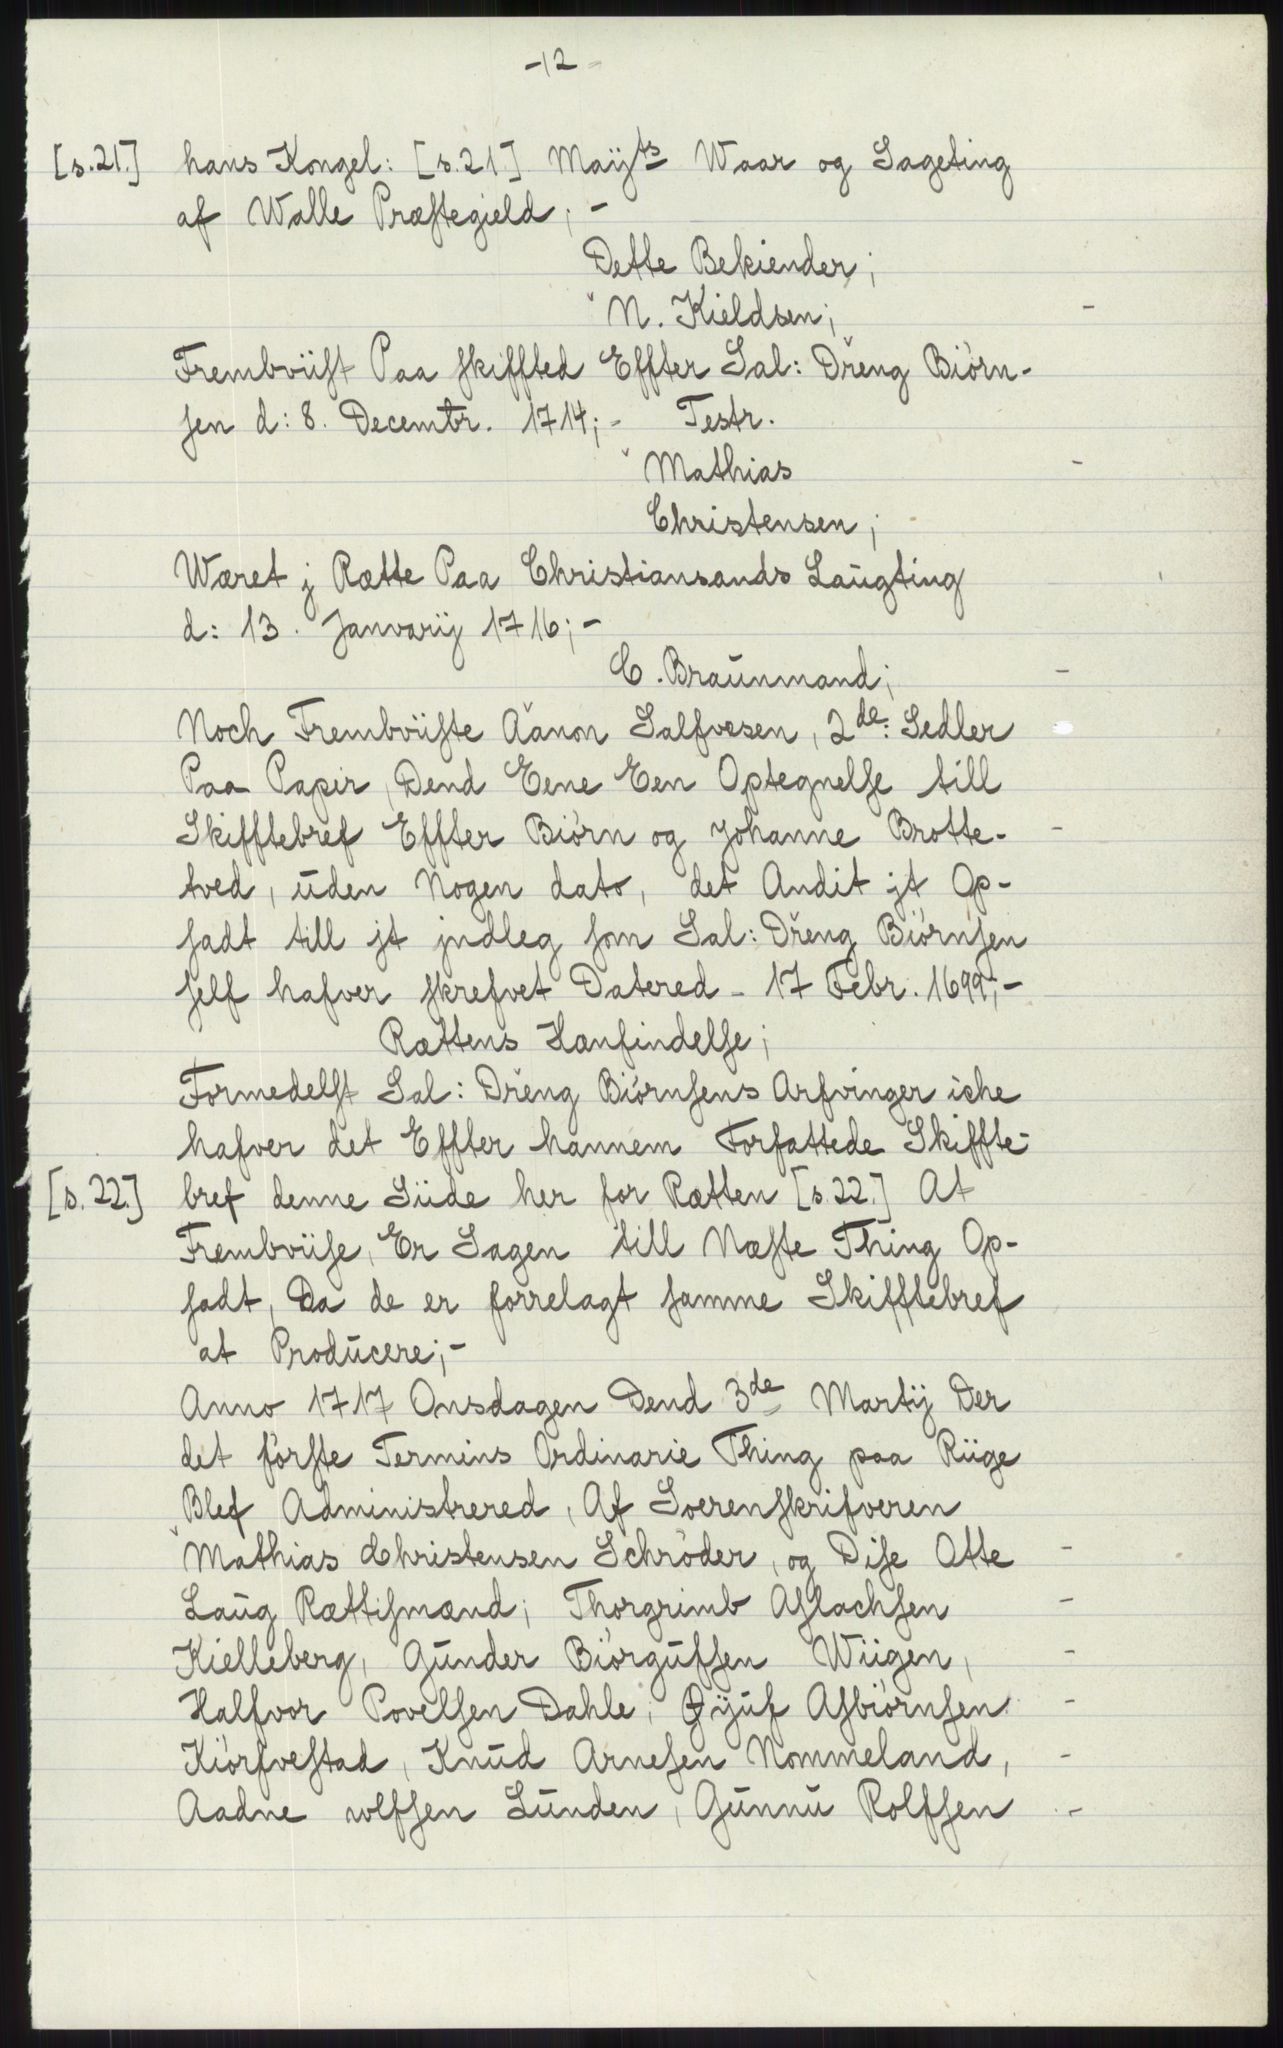 -12-
[s.21.] hans Kongel: [s.21.] Maÿts Waar og Sageting
af Walle Præstegield; -
Dette Bekiender;
N. Kieldsen;
Frembviist Paa skiffted Effter Sal: Dreng Biørn-
sen d: 8. Decembr. 1714; - Testr.
Mathias
Christensen;
Wæret j Rætte Paa Christiansands Laugting
d: 13. Janvarij 1716; -
C. Braunmand;
Noch Frembviiste Aanon Salfvesen, 2de: Sedler
Paa Papir, Dend Eene Een Optegnelse till
Skifftebref Effter Biørn og Johanne Brotte-
tved, uden Nogen dato, det Andit jt Op-
sadt till jt jndleg som Sal: Dreng Biørnsen
self hafver skrefvet Datered - 17 Febr. 1699; -
Rættens Kænfindelse;
Formedelst Sal: Dreng Biørnsens Arfvinger iche
hafver det Effter hannem Forfattede Skiffte-
[s.22.] bref denne Siide her for Rætten [s.22.] At
Frembviise, Er Sagen till Næste Thing Op-
sadt, Da de er forrelagt samme Skifftebref
at Producere; -
Anno 1717 Onsdagen Dend 3de Martij Der
det første Termins Ordinarie Thing paa Riige
Blef Administrered, Af Soerenskrifveren
Mathias Christensen Schrøder, og Dise Otte
Laug Rættismænd; Thorgrimb Aslachsen
Kielleberg, Gunder Biørgufsen Wiigen,
Halfvor Povelsen Dahle, Øÿuf Asbiørnsen
Kiørfvestad, Knud Arnesen Nommeland,
Aadne rolfsen Lunden, Gunnu Rolfsen